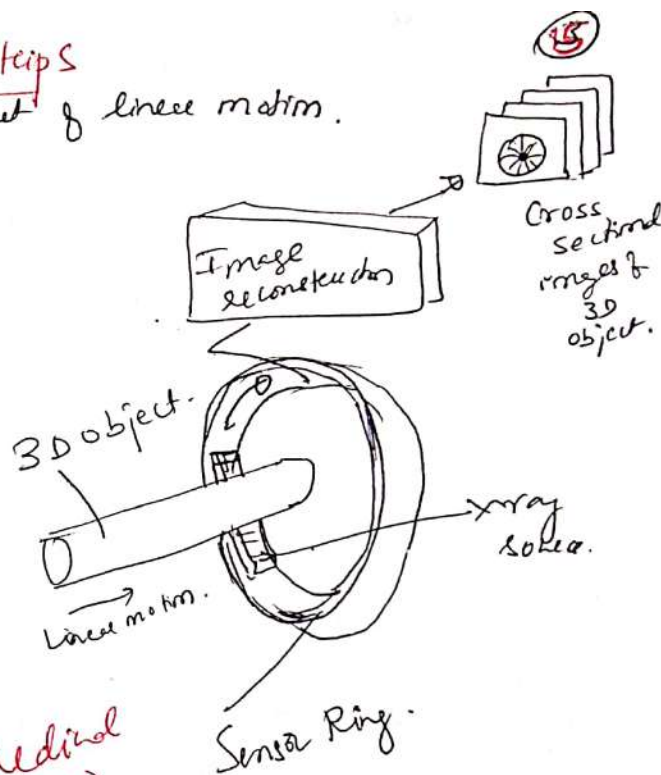 et of linear motion.
Image
reconstruction
Cross
sectional
images of
3D
object.
3D object.
Xray
source.
Linear motion.
Sensor Ring.